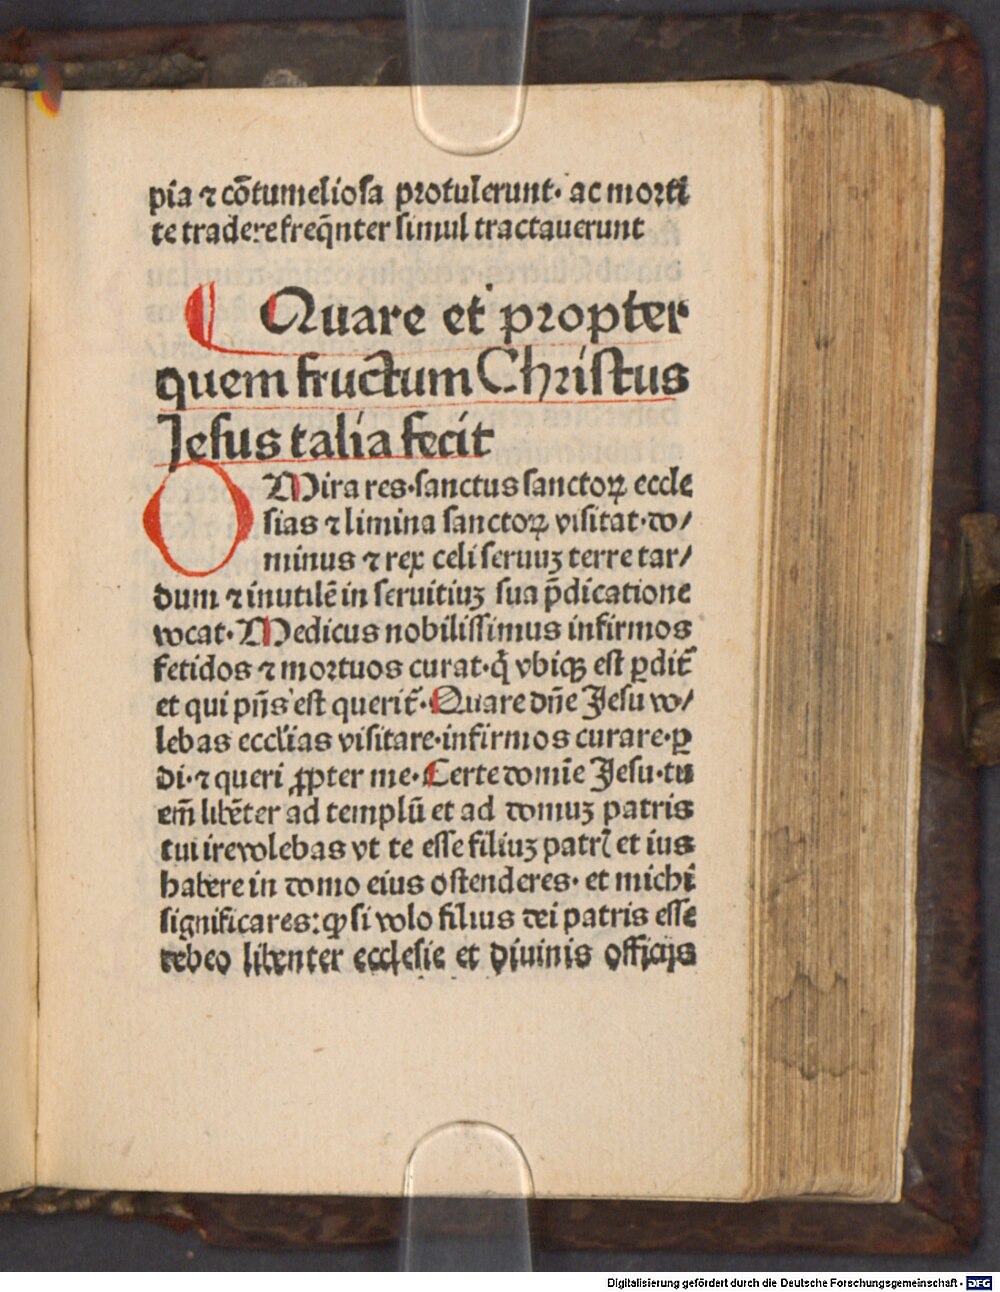 pia ⁊ cõtumeliosa protulerunt· ac morti
te tradere freq̃nter simul tractauerunt
Quare et propter
quem fructum Christus
Jesus talia fecit
O Mira res·sanctus sanctoꝝ eccle
sias ⁊ limina sanctoꝝ visitat·do/
minus ⁊ rex celi seruuꝫ terre tar/
dum ⁊ inutilẽ in seruitiuꝫ sua p̄dicatione
vocat·Medicus nobilissimus infirmos
fetidos ⁊ mortuos curat·q̇ vbiqꝫ est ꝑdit̃
et qui pñs est querit̃·Quare dñe Jesu vo/
lebas eccl'ias visitare·infirmos curare·ꝑ
di·⁊ queri ꝓpter me·Certe domĩe Jesu·tu
em̃ libẽter ad templũ et ad domuꝫ patris
tui ire volebas vt te esse filiuꝫ patrꝭ et ius
habere in domo eius ostenderes· et michi
significares:ꝙ si volo filius dei patris esse
debeo libenter ecclesie et diuinis officijs
Digitalisierung gefördert durch die Deutsche Forschungsgemeinschaft - DFG